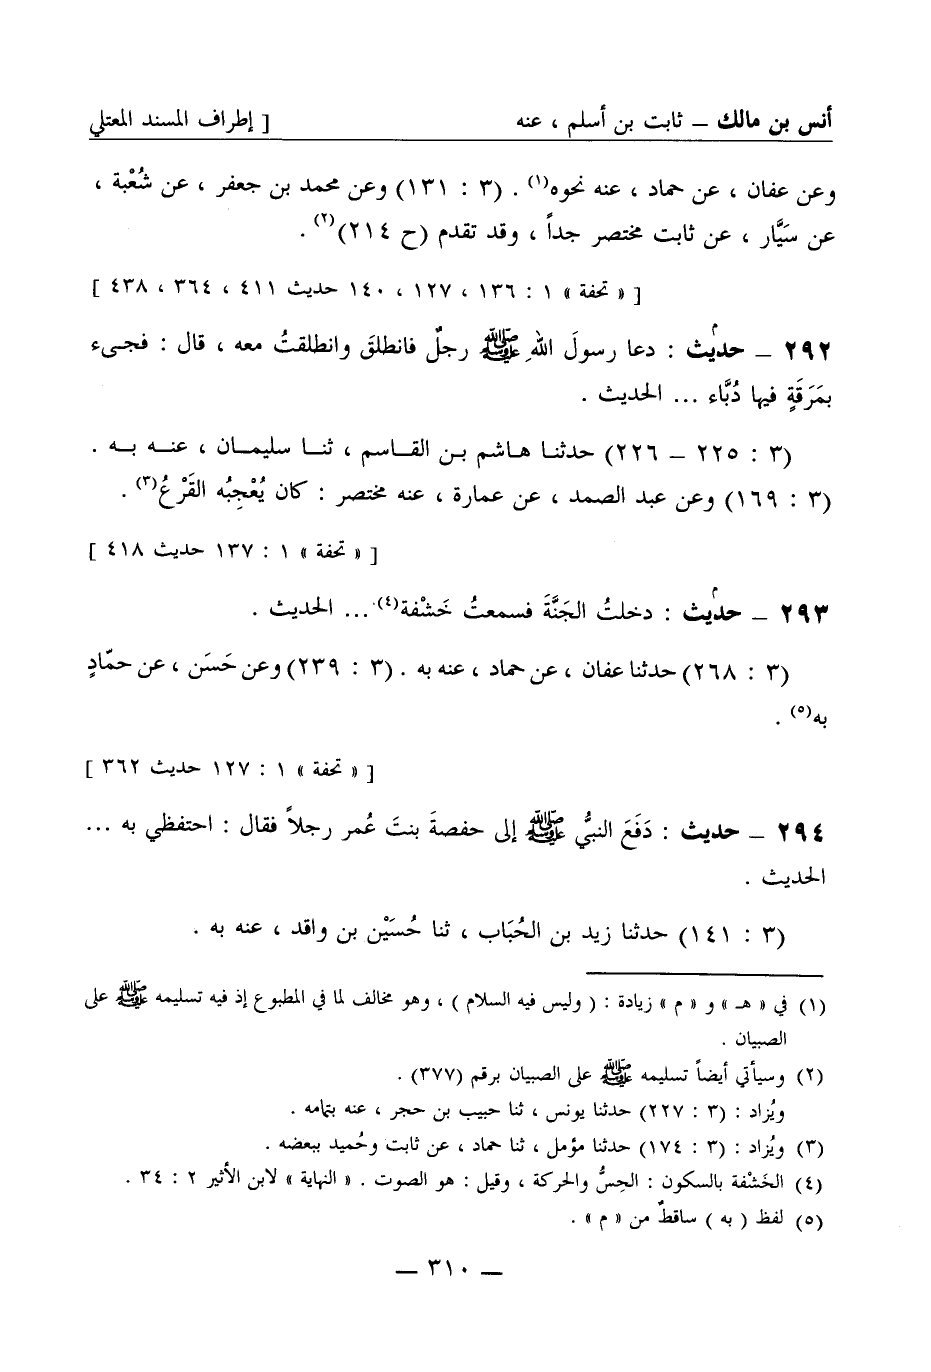 أنس بن مالك – ثابت بن أسلم ، عنه [ إطراف المسند المعتلي
وعن عفان ، عن حماد ، عنه نحوه(١) . (٣ : ١٣١) وعن محمد بن جعفر ، عن شُعْبة ،
عن سَيَّار ، عن ثابت مختصر جداً ، وقد تقدم (ح ٢١٤)(٢) .
[ « تحفة » ١ : ١٣٦ ، ١٢٧ ، ١٤٠ حديث ٤١١ ، ٣٦٤ ، ٤٣٨ ]
٢٩٢ – حديث : دعا رسولَ اللهِ ﷺ رجلٌ فانطلقَ وانطلقتُ معه ، قال : فجىء
بمَرَقَةٍ فيها دُبَّاء ... الحديث .
(٣ : ٢٢٥ – ٢٢٦) حدثنا هاشم بن القاسم ، ثنا سليمان ، عنه به .
(٣ : ١٦٩) وعن عبد الصمد ، عن عمارة ، عنه مختصر : كان يُعْجِبُه القَرْعُ(٣) .
[ « تحفة » ١ : ١٣٧ حديث ٤١٨ ]
٢٩٣ – حديث : دخلتُ الجَنَّةَ فسمعتُ خَشْفة(٤) ... الحديث .
(٣ : ٢٦٨) حدثنا عفان ، عن حماد ، عنه به . (٣ : ٢٣٩) وعن حَسَن ، عن حمّادٍ
به(٥) .
[ « تحفة » ١ : ١٢٧ حديث ٣٦٢ ]
٢٩٤ – حديث : دَفَعَ النبيُّ ﷺ إلى حفصةَ بنتَ عُمر رجلاً فقال : احتفظي به ...
الحديث .
(٣ : ١٤١) حدثنا زيد بن الحُبَاب ، ثنا حُسَيْن بن واقد ، عنه به .
(١) في « هـ » و « م » زيادة : ( وليس فيه السلام ) ، وهو مخالف لما في المطبوع إذ فيه تسليمه ﷺ على
الصبيان .
(٢) وسيأتي أيضاً تسليمه ﷺ على الصبيان برقم (٣٧٧) .
ويُزاد : (٣ : ٢٢٧) حدثنا يونس ، ثنا حبيب بن حجر ، عنه بتمامه .
(٣) ويُزاد : (٣ : ١٧٤) حدثنا مؤمل ، ثنا حماد ، عن ثابت وحُميد ببعضه .
(٤) الخَشْفة بالسكون : الحِسُّ والحركة ، وقيل : هو الصوت . « النهاية » لابن الأثير ٢ : ٣٤ .
(٥) لفظ ( به ) ساقطٌ من « م » .
– ٣١٠ –